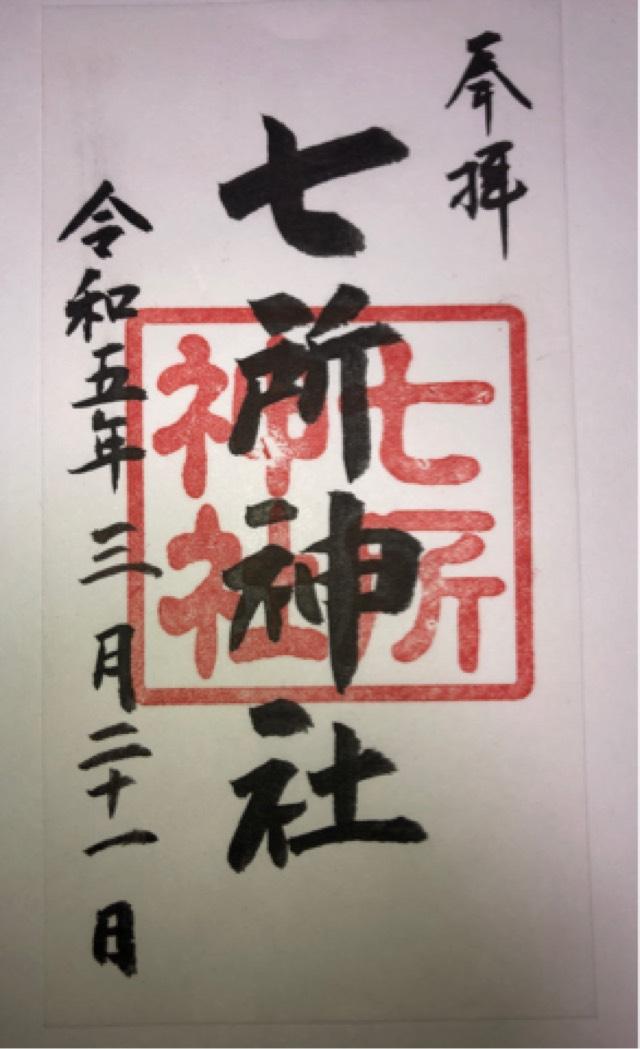 奉拝
七所神社
七所
神社
令和五年三月二十一日